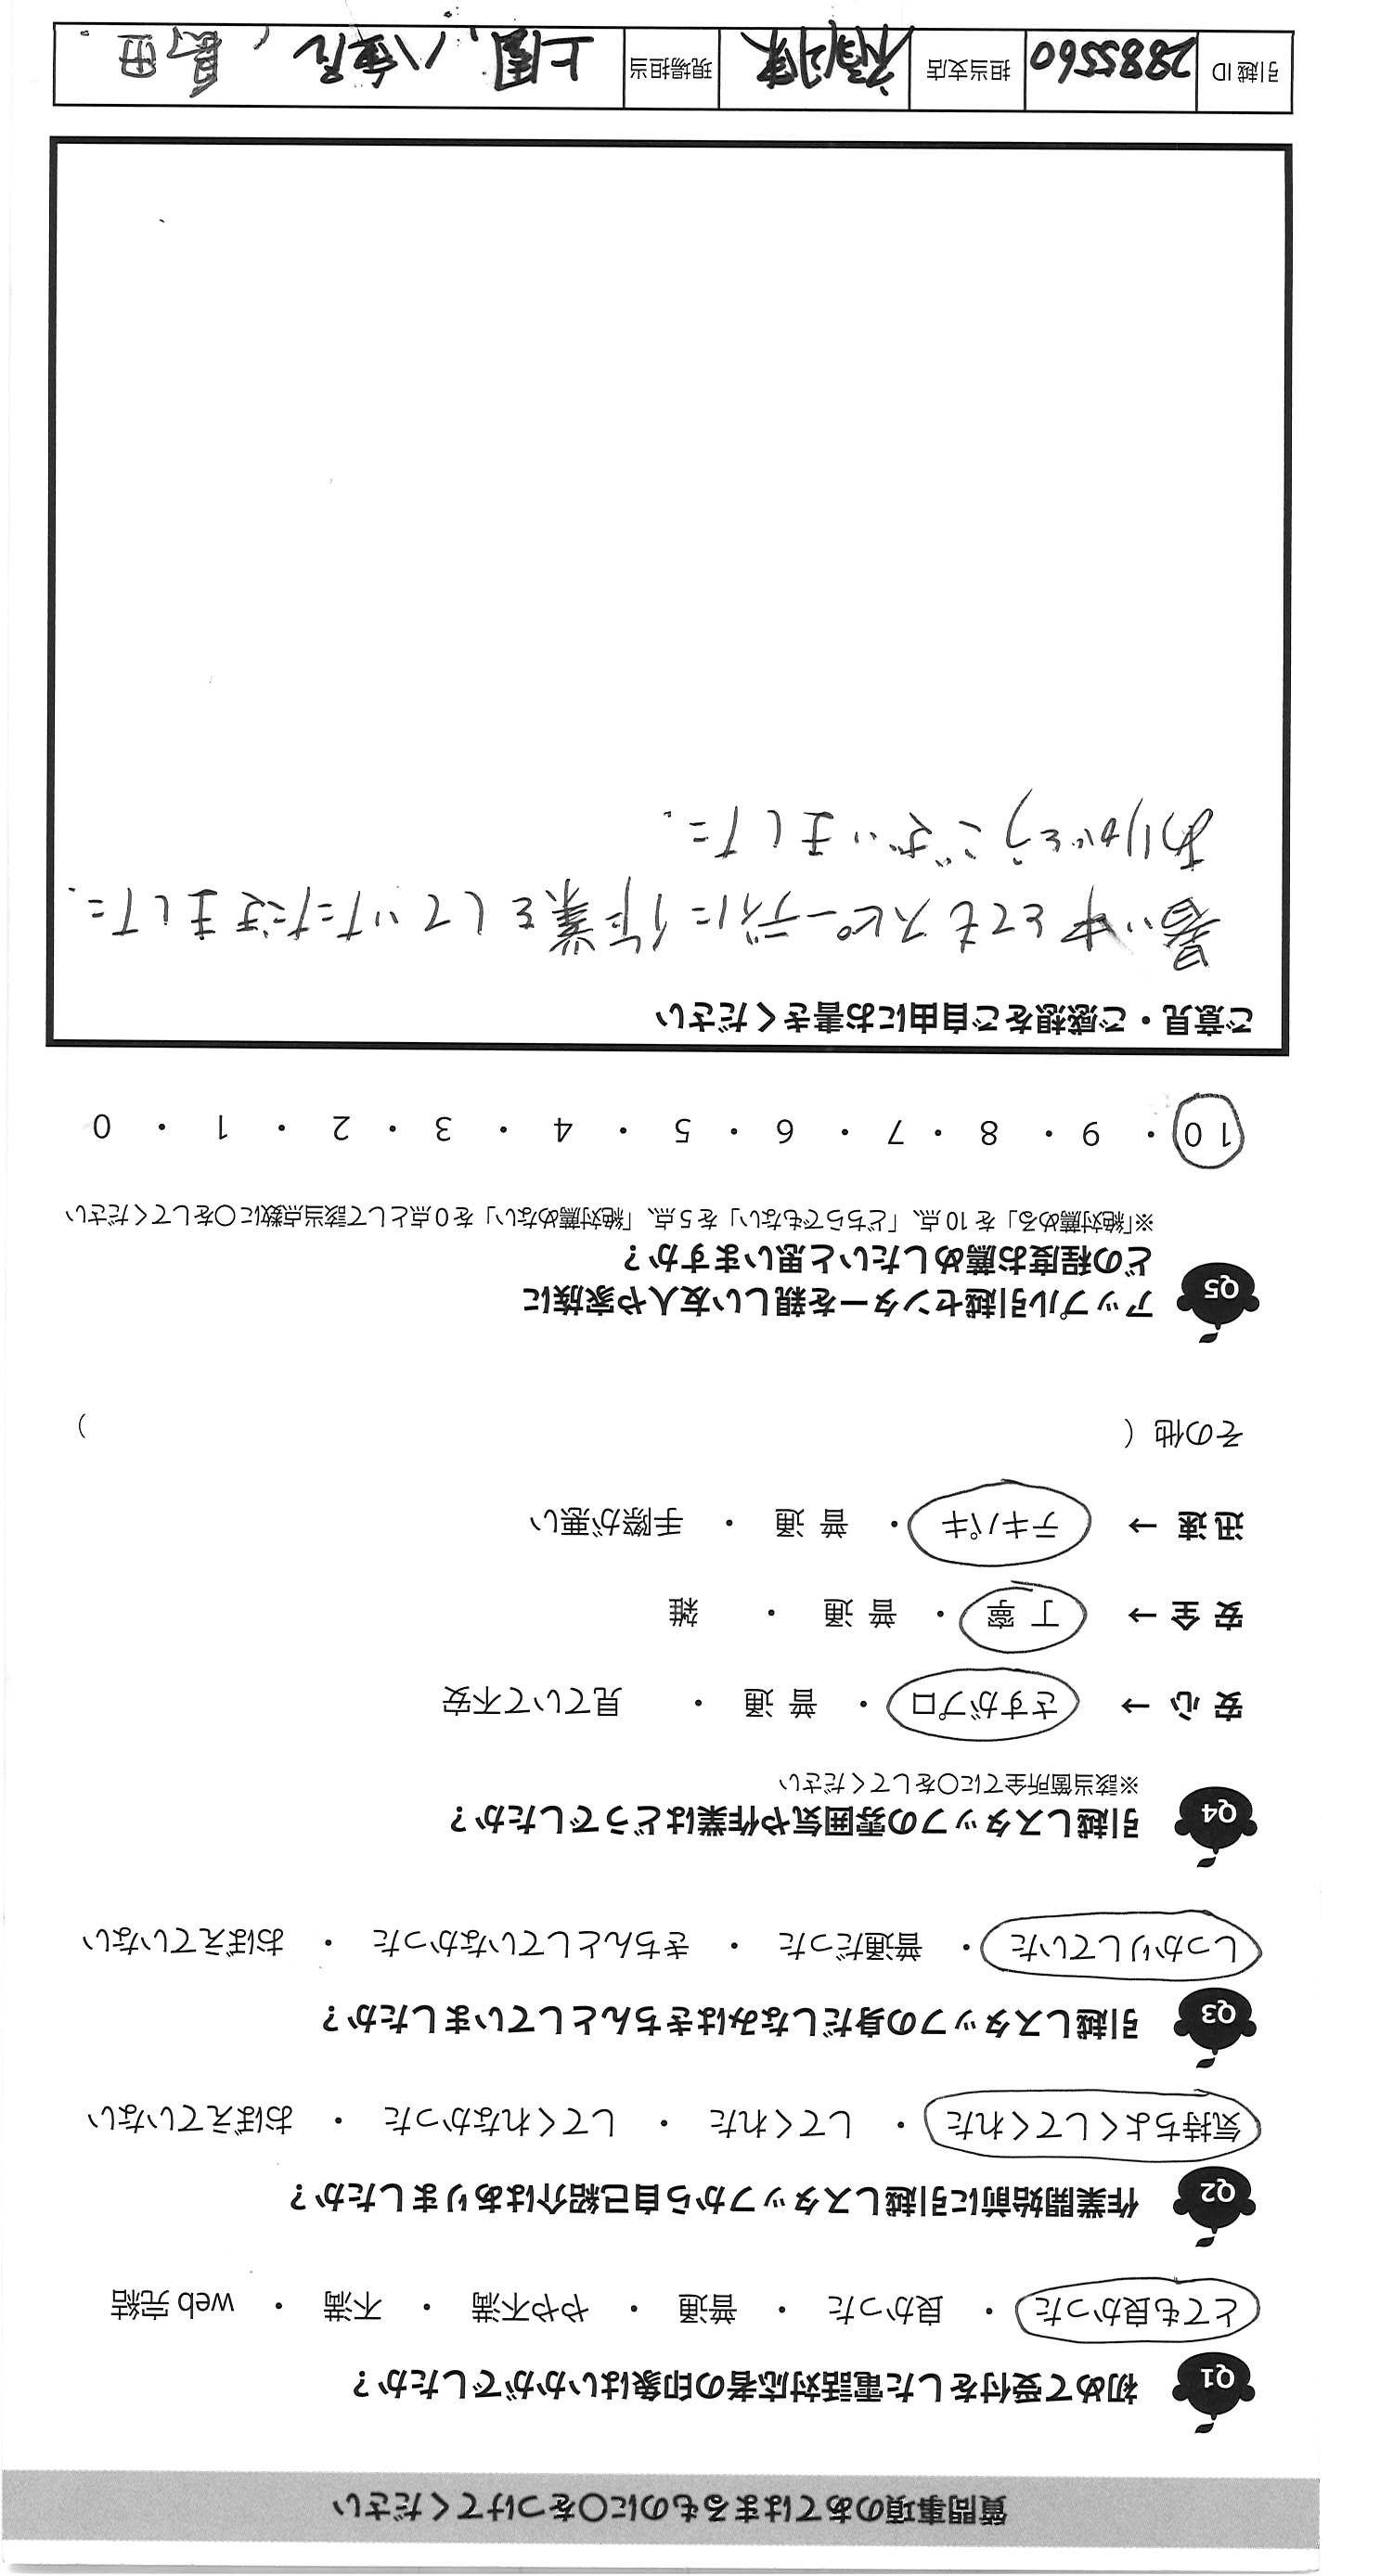 質問事項のあてはまるものに〇をつけてください
Q1 初めて受付をした電話対応者の印象はいかがでしたか？
とても良かった ・ 良かった ・ 普通 ・ やや不満 ・ 不満 ・ web完結
Q2 作業開始前に引越しスタッフから自己紹介はありましたか？
気持ちよくしてくれた ・ してくれた ・ してくれなかった ・ おぼえていない
Q3 引越しスタッフの身だしなみはきちんとしていましたか？
しっかりしていた ・ 普通だった ・ きちんとしていなかった ・ おぼえていない
Q4 引越しスタッフの雰囲気や作業はどうでしたか？
※該当箇所全てに〇をしてください
安心 → さすがプロ ・ 普通 ・ 見ていて不安
安全 → 丁寧 ・ 普通 ・ 雑
迅速 → テキパキ ・ 普通 ・ 手際が悪い
その他（ ）
Q5 アップル引越センターを親しい友人や家族に
どの程度お薦めしたいと思いますか？
※「絶対薦める」を10点、「どちらでもない」を5点、「絶対薦めない」を0点として該当点数に〇をしてください
10 ・ 9 ・ 8 ・ 7 ・ 6 ・ 5 ・ 4 ・ 3 ・ 2 ・ 1 ・ 0
ご意見・ご感想をご自由にお書きください
暑い中とてもスピーディに作業をしていただきました。
ありがとうございました。
引越ID 2885560 担当支店 現場担当 上園、八重尾、長田